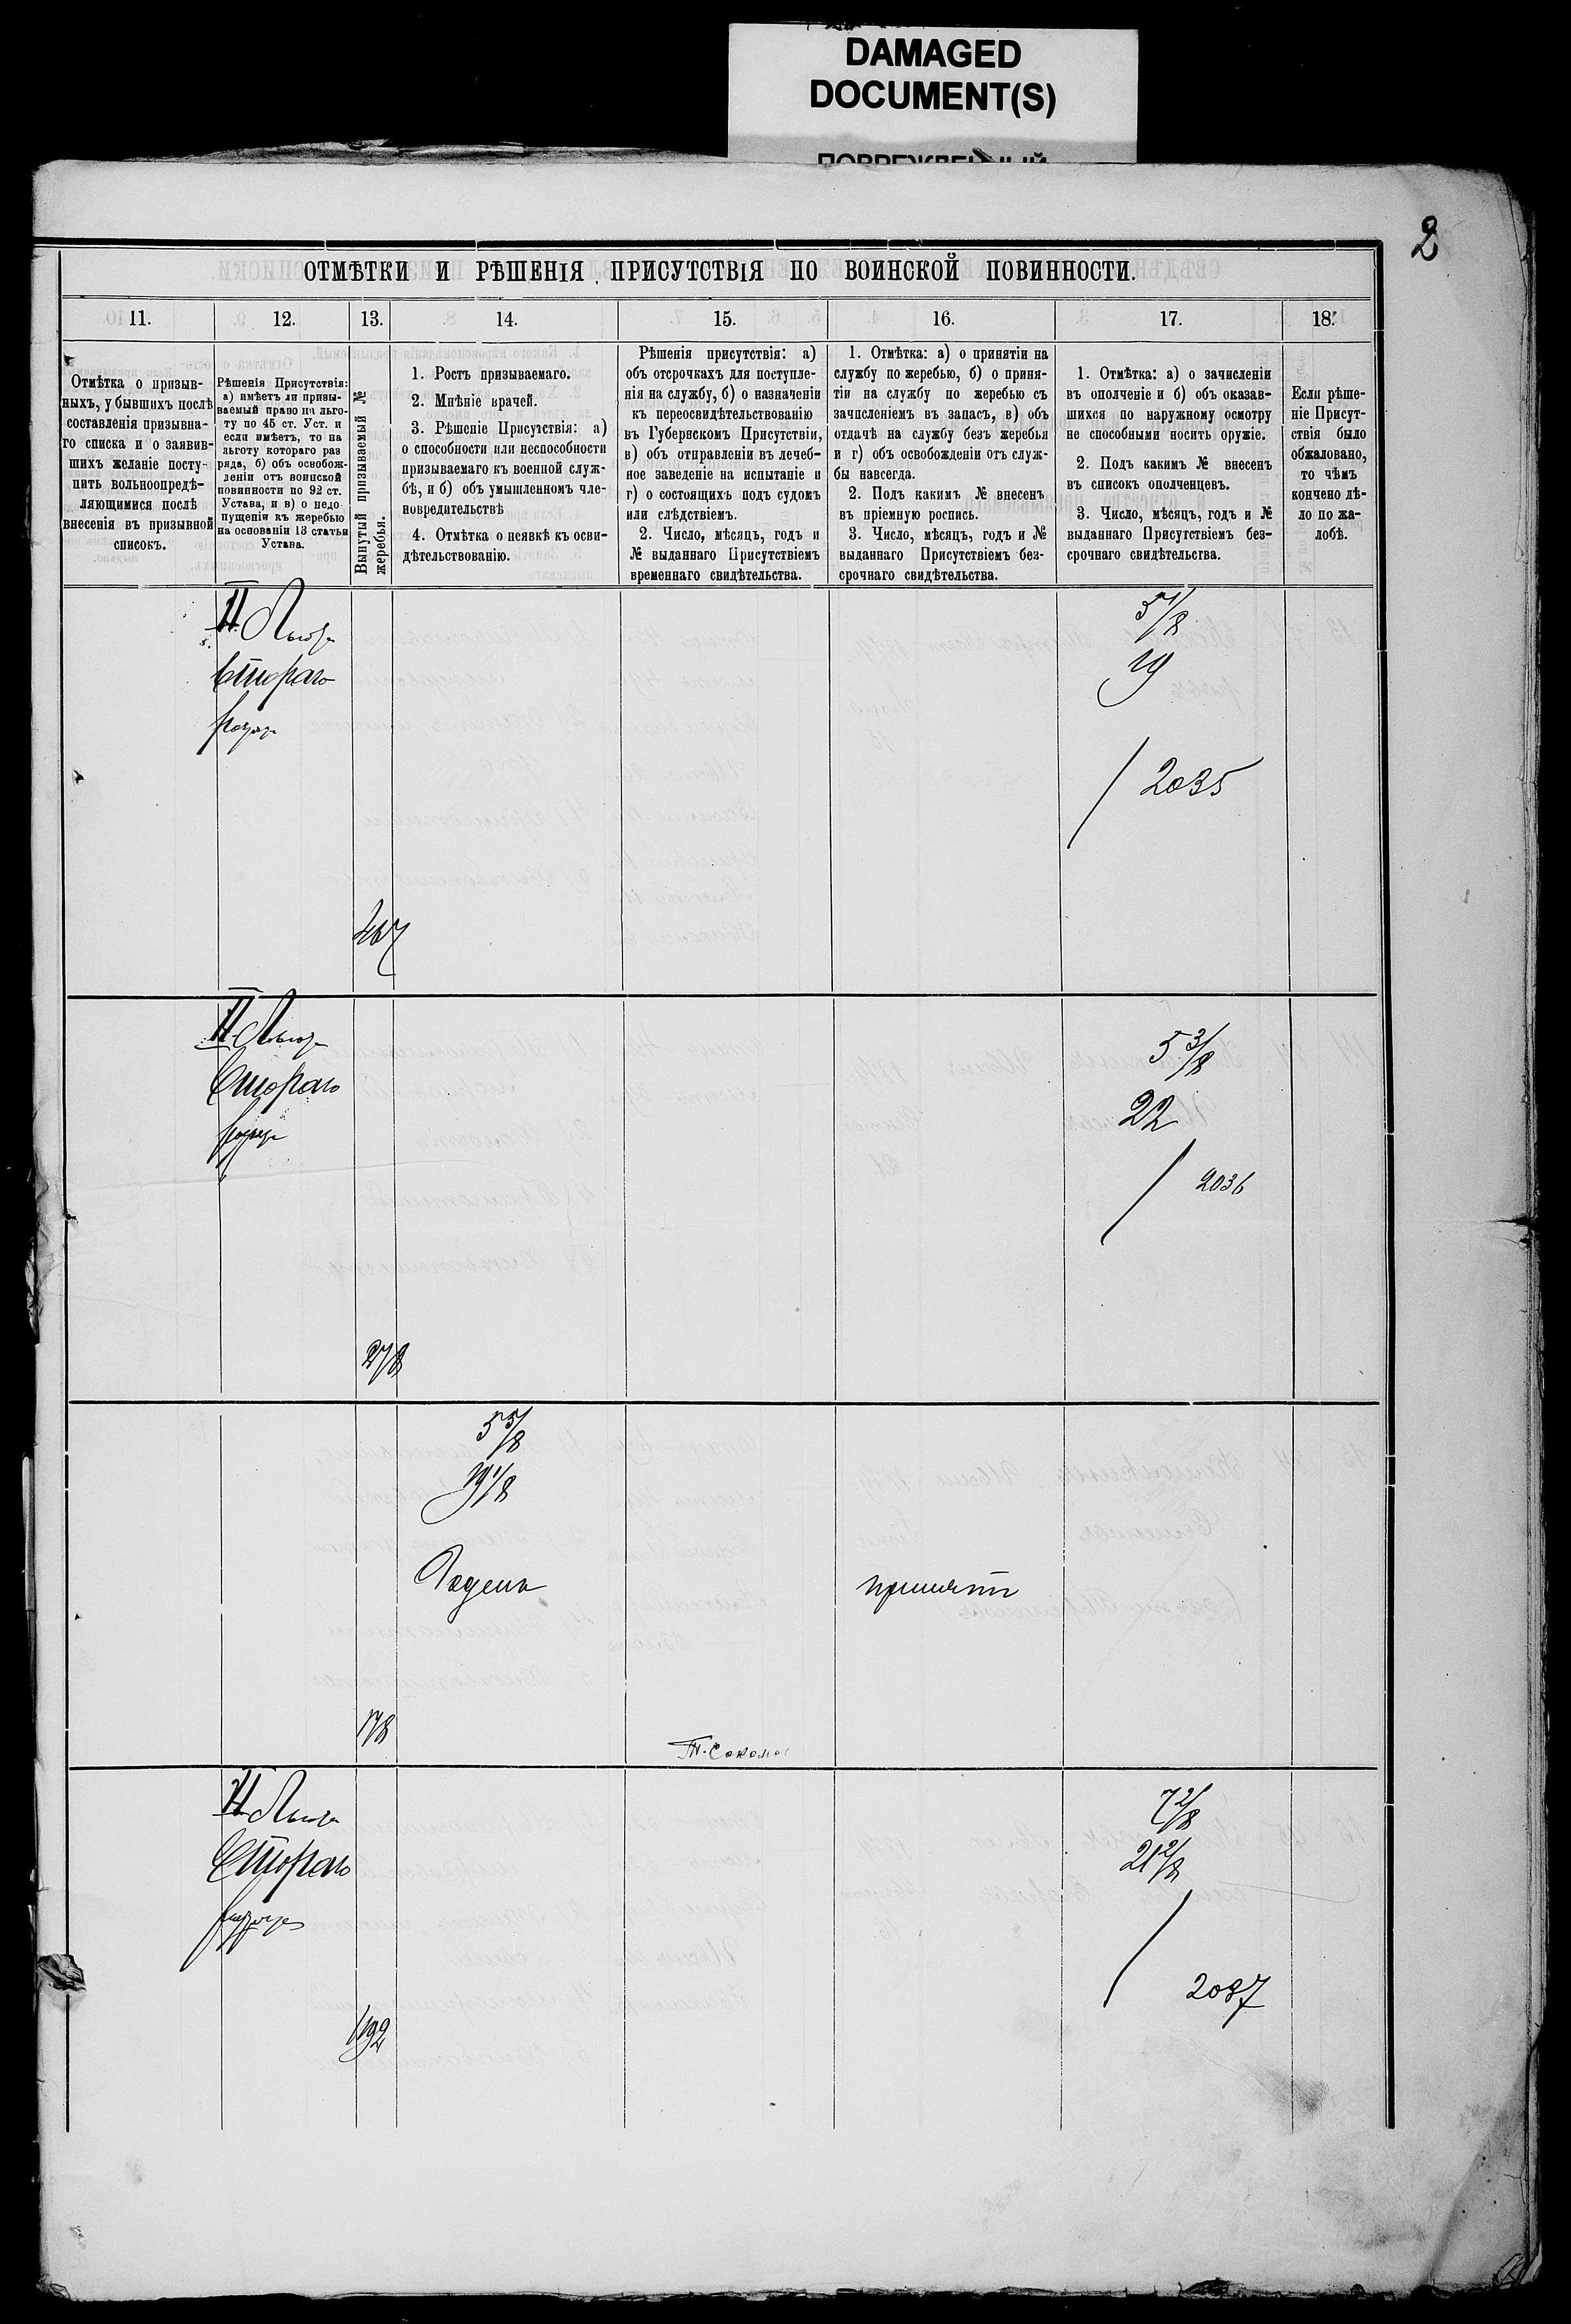 DAMAGED
DOCUMENT(S)
ПОВРЕЖДЕННЫЙ
2
ОТМѢТКИ И РѢШЕНІЯ ПРИСУТСТВІЯ ПО ВОИНСКОЙ ПОВИННОСТИ.
11.
12.
13.
14.
15.
16.
17.
18.
Отмѣтка о призыв-
ныхъ, у бывшихъ послѣ
составленія призывна-
го списка и о заявив-
шихъ желаніе посту-
пить вольноопредѣ-
ляющимися послѣ
внесенія въ призывной
списокъ.
Рѣшенія Присутствія:
а) имѣетъ ли призы-
ваемый право на льго-
ту по 45 ст. Уст. и
если имѣетъ, то на
льготу котораго раз
ряда, б) объ освобож-
деніи отъ воинской
повинности по 92 ст.
Устава, и в) о недо
пущеніи къ жеребью
на основаніи 13 статьи
Устава.
Вынутый призываемый №
жеребья.
1. Ростъ призываемаго.
2. Мнѣніе врачей.
3. Рѣшеніе Присутствія: а)
о способности или неспособности
призываемаго къ военной служ-
бѣ, и б) объ умышленномъ чле-
новредительствѣ
4. Отмѣтка о неявкѣ къ осви-
дѣтельствованію.
Рѣшенія присутствія: а)
объ отсрочкахъ для поступле-
нія на службу, б) о назначеніи
къ переосвидѣтельствованію
въ Губернскомъ Присутствіи,
в) объ отправленіи въ лечеб-
ное заведеніе на испытаніе и
г) о состоящихъ подъ судомъ
или слѣдствіемъ.
2. Число, мѣсяцъ, годъ и
№ выданнаго Присутствіемъ
временнаго свидѣтельства.
1. Отмѣтка: а) о принятіи на
службу по жеребью, б) о приня-
тіи на службу по жеребью съ
зачисленіемъ въ запасъ, в) объ
отдачѣ на службу безъ жеребья
и г) объ освобожденіи отъ служ-
бы навсегда.
2. Подъ какимъ № внесенъ
въ пріемную роспись.
3. Число, мѣсяцъ, годъ и №
выданнаго Присутствіемъ без-
срочнаго свидѣтельства.
1. Отмѣтка: а) о зачисленіи
въ ополченіе и б) объ оказав-
шихся по наружному осмотру
не способными носить оружіе.
2. Подъ какимъ № внесенъ
въ списокъ ополченцевъ.
3. Число, мѣсяцъ, годъ и №
выданнаго Присутствіемъ без-
срочнаго свидѣтельства.
Если рѣше-
ніе Присут-
ствія было
обжаловано,
то чѣмъ
кончено дѣ-
ло по жа-
лобѣ.
II Льгота
Второго
разряда
467
5 1/8
19
2035
II Льгота
Второго
разряда
278
5 3/8
22
2036
5 5/8
19 1/8
Годенъ
принятъ
178
II Льгота
Второго
разряда
192
7 2/8
21 2/8
2037